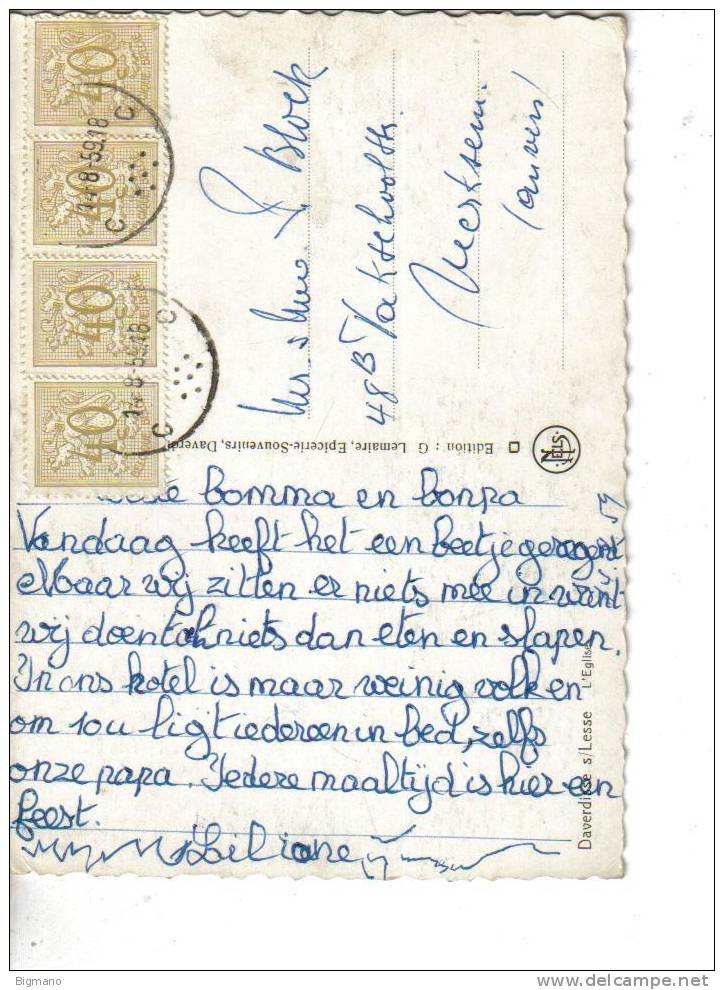 40
40
40
40
14-8-59.18
14-8-59.18
C C
C C
Mr. & Mme. Block
48B Takschoolstr.
Merksem.
(anvers)
Edition : G Lemaire, Epicerie-Souvenirs, Daverdi
NELS
bomma en bonpa
Vandaag heeft het een beetje geregent
Maar wij zitten er niets mee in want
wij doen toch niets dan eten en slapen.
In ons hotel is maar weinig volk en
om 10u ligt iedereen in bed, zelfs
onze papa. Iedere maaltijd is hier een
feest.
Liliane
Daverdisse s/Lesse L'Eglise
59
Bigmano
delcampe.net